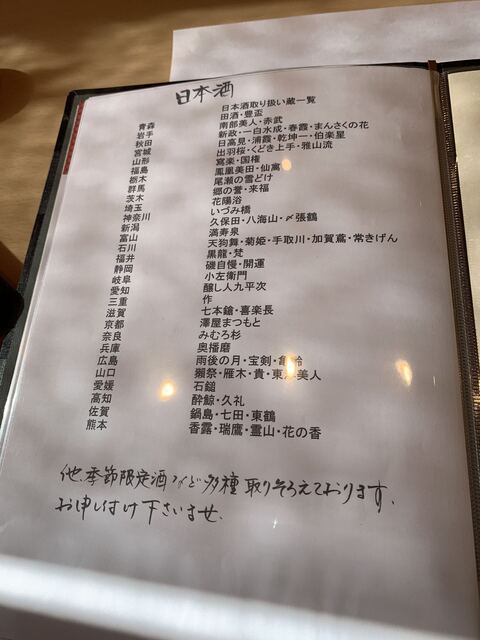 日本酒
日本酒取り扱い蔵一覧
青森 田酒・豊盃
岩手 南部美人・赤武
秋田 新政・一白水成・春霞・まんさくの花
宮城 日高見・浦霞・乾坤一・伯楽星
山形 出羽桜・くどき上手・雅山流
福島 寫楽・国権
栃木 鳳凰美田・仙禽
群馬 尾瀬の雪どけ
茨木 郷の誉・来福
埼玉 花陽浴
神奈川 いづみ橋
新潟 久保田・八海山・〆張鶴
富山 満寿泉
石川 天狗舞・菊姫・手取川・加賀鳶・常きげん
福井 黒龍・梵
静岡 磯自慢・開運
岐阜 小左衛門
愛知 醸し人九平次
三重 作
滋賀 七本鎗・喜楽長
京都 澤屋まつもと
奈良 みむろ杉
兵庫 奥播磨
広島 雨後の月・宝剣・亀齢
山口 獺祭・雁木・貴・東洋美人
愛媛 石鎚
高知 酔鯨・久礼
佐賀 鍋島・七田・東鶴
熊本 香露・瑞鷹・霊山・花の香
他、季節限定酒など多種取りそろえております。
お申し付け下さいませ。